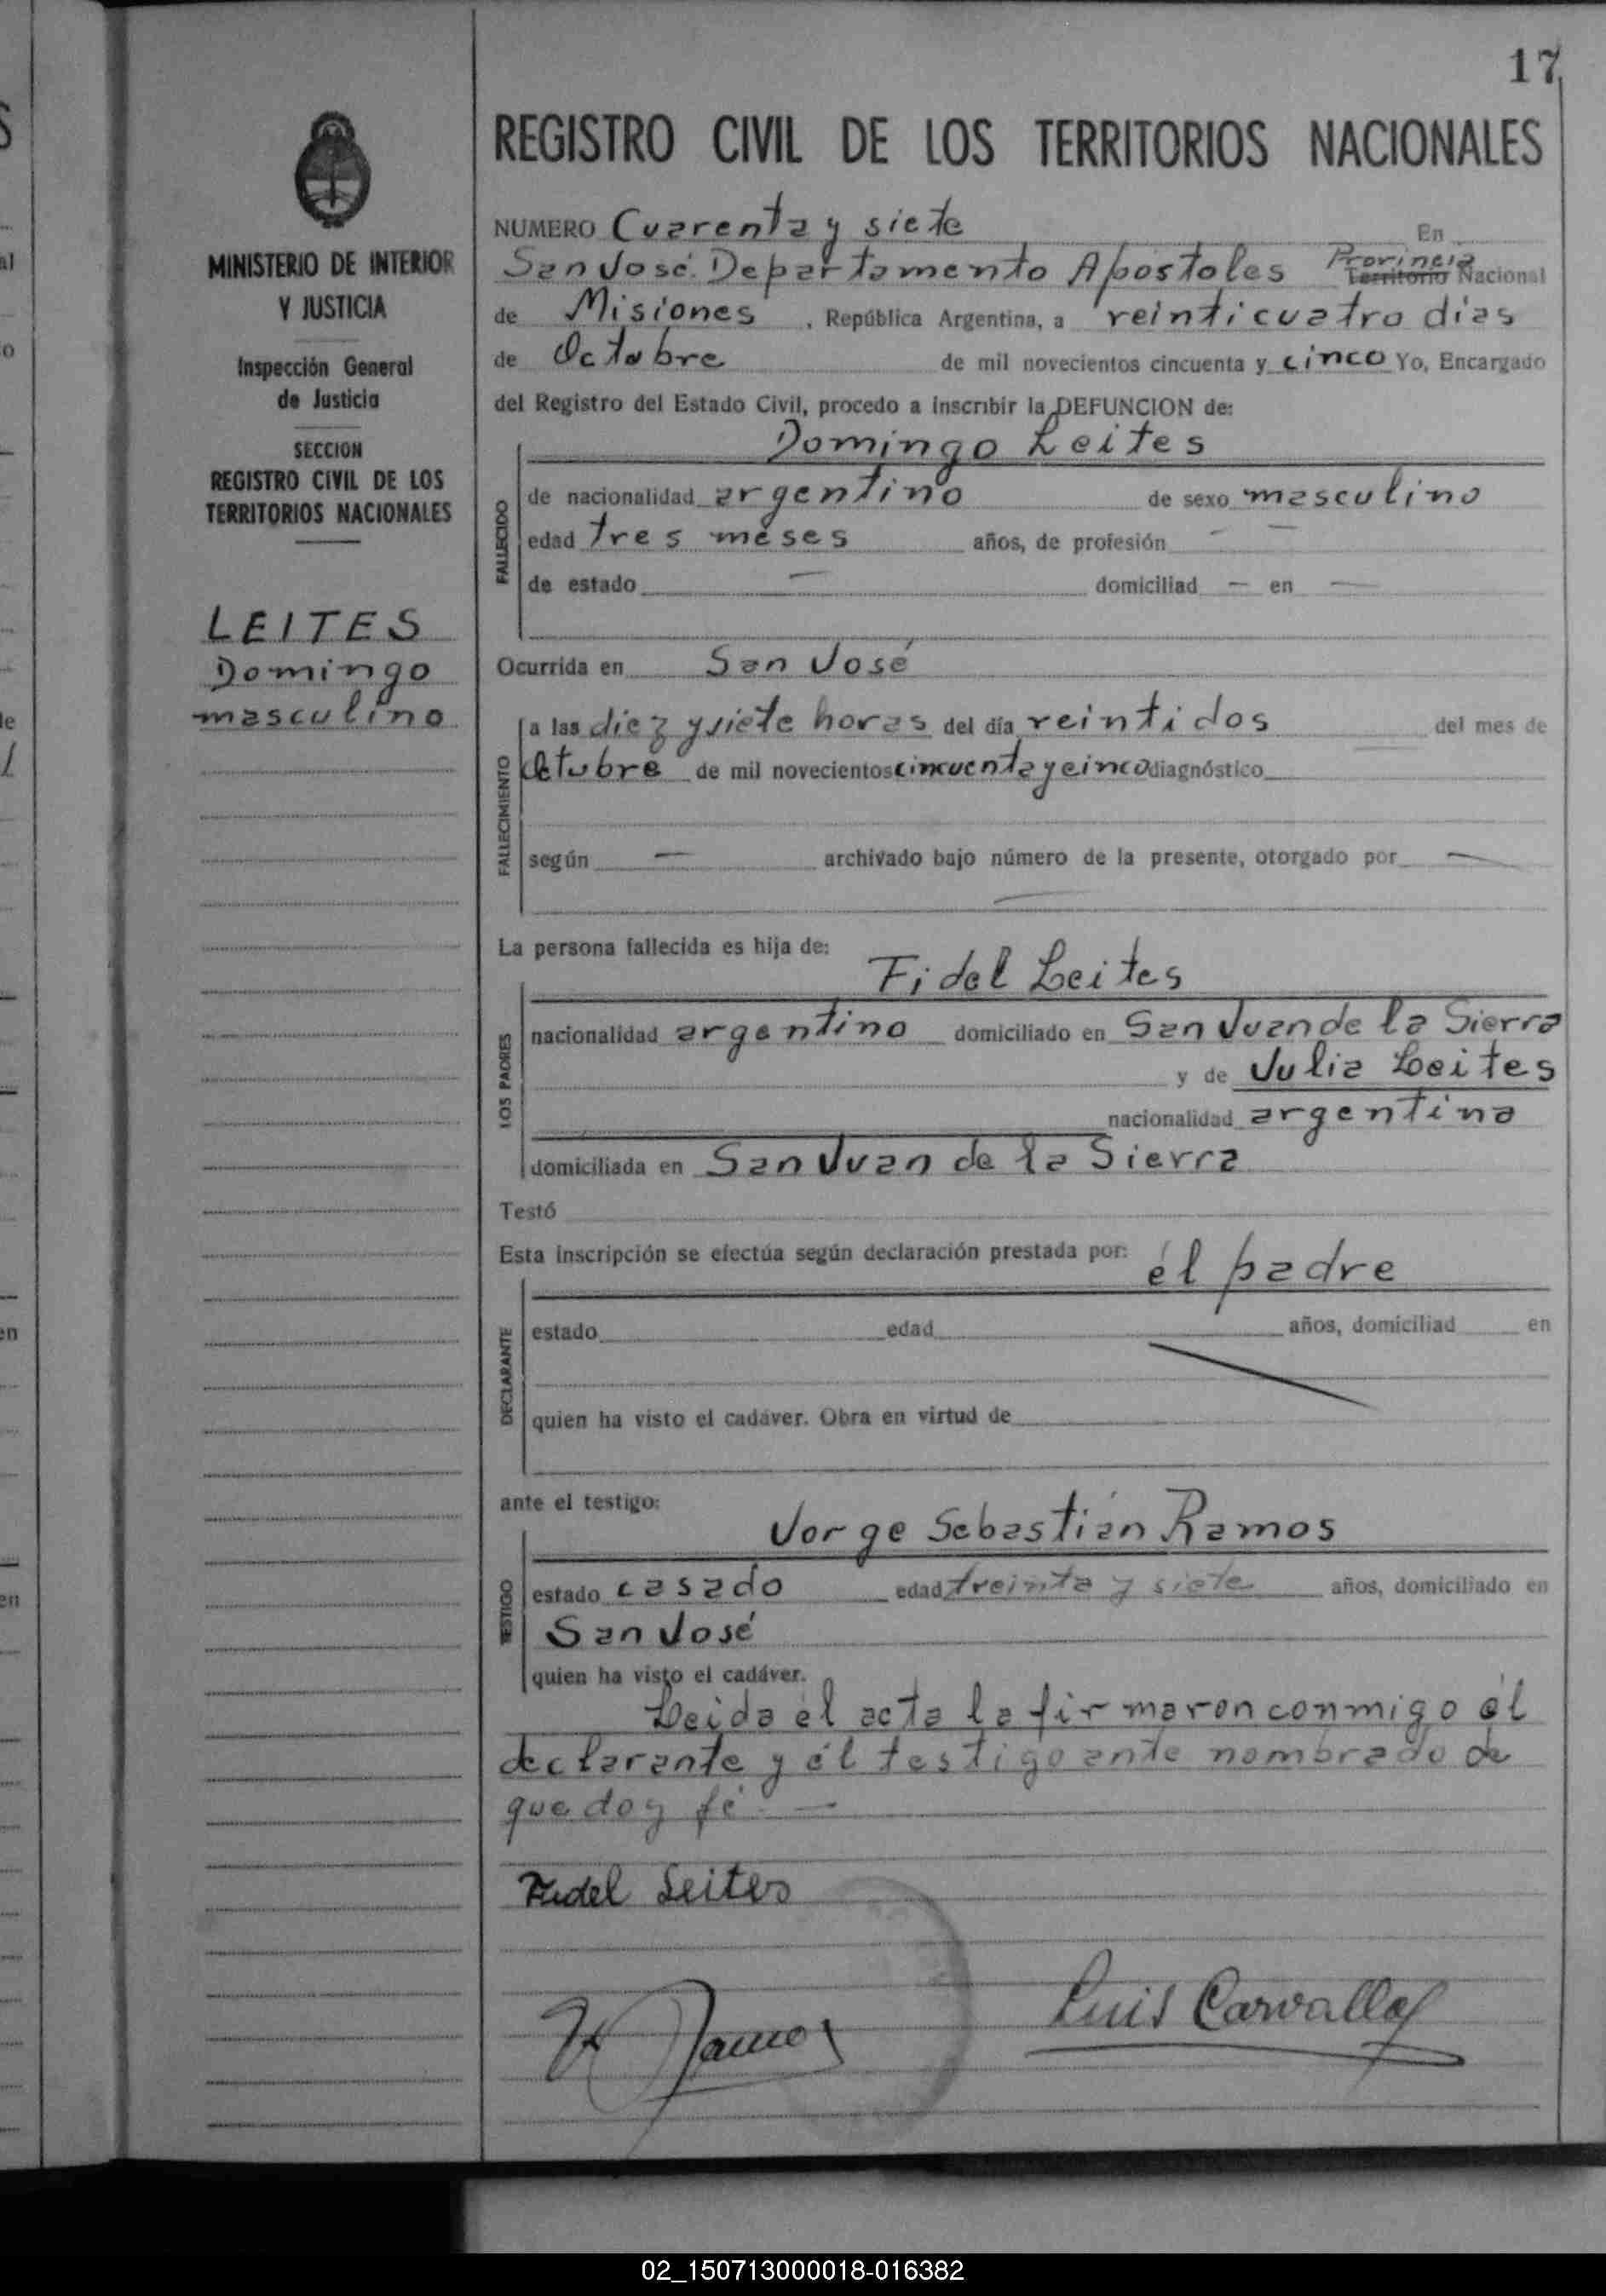 17
REGISTRO CIVIL DE LOS TERRITORIOS NACIONALES
MINISTERIO DE INTERIOR
Y JUSTICIA
Inspección General
de Justicia
SECCION
REGISTRO CIVIL DE LOS
TERRITORIOS NACIONALES
LEITES
Domingo
masculino
NUMERO Cuarenta y siete En
San José. Departamento Apóstoles Provincia Territorio Nacional
de Misiones, República Argentina, a veinticuatro días
de Octubre de mil novecientos cincuenta y cinco Yo, Encargado
del Registro del Estado Civil, procedo a inscribir la DEFUNCION de:
Domingo Leites
FALLECIDO
de nacionalidad argentino de sexo masculino
edad tres meses años, de profesión -
de estado — domiciliad — en —
Ocurrida en San José
FALLECIMIENTO
a las diez y siete horas del día veintidos del mes de
Octubre de mil novecientos cincuenta y cinco diagnóstico
según — archivado bajo número de la presente, otorgado por —
La persona fallecida es hija de:
Fidel Leites
LOS PADRES
nacionalidad argentino domiciliado en San Juan de la Sierra
y de Julia Leites
nacionalidad argentina
domiciliada en San Juan de la Sierra
Testó
Esta inscripción se efectúa según declaración prestada por:
él padre
DECLARANTE
estado edad años, domiciliad en
quien ha visto el cadáver. Obra en virtud de
ante el testigo:
Jorge Sebastián Ramos
TESTIGO
estado casado edad treinta y siete años, domiciliado en
San José
quien ha visto el cadáver.
Leida él acta la firmaron conmigo él
declarante y él testigo ante nombrado de
que doy fé. —
Fidel Leites
Ramos
Luis Carvallo
02_150713000018-016382